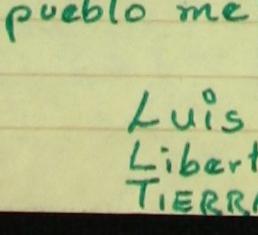 pueblo me
Luis
Libert
TIERRA